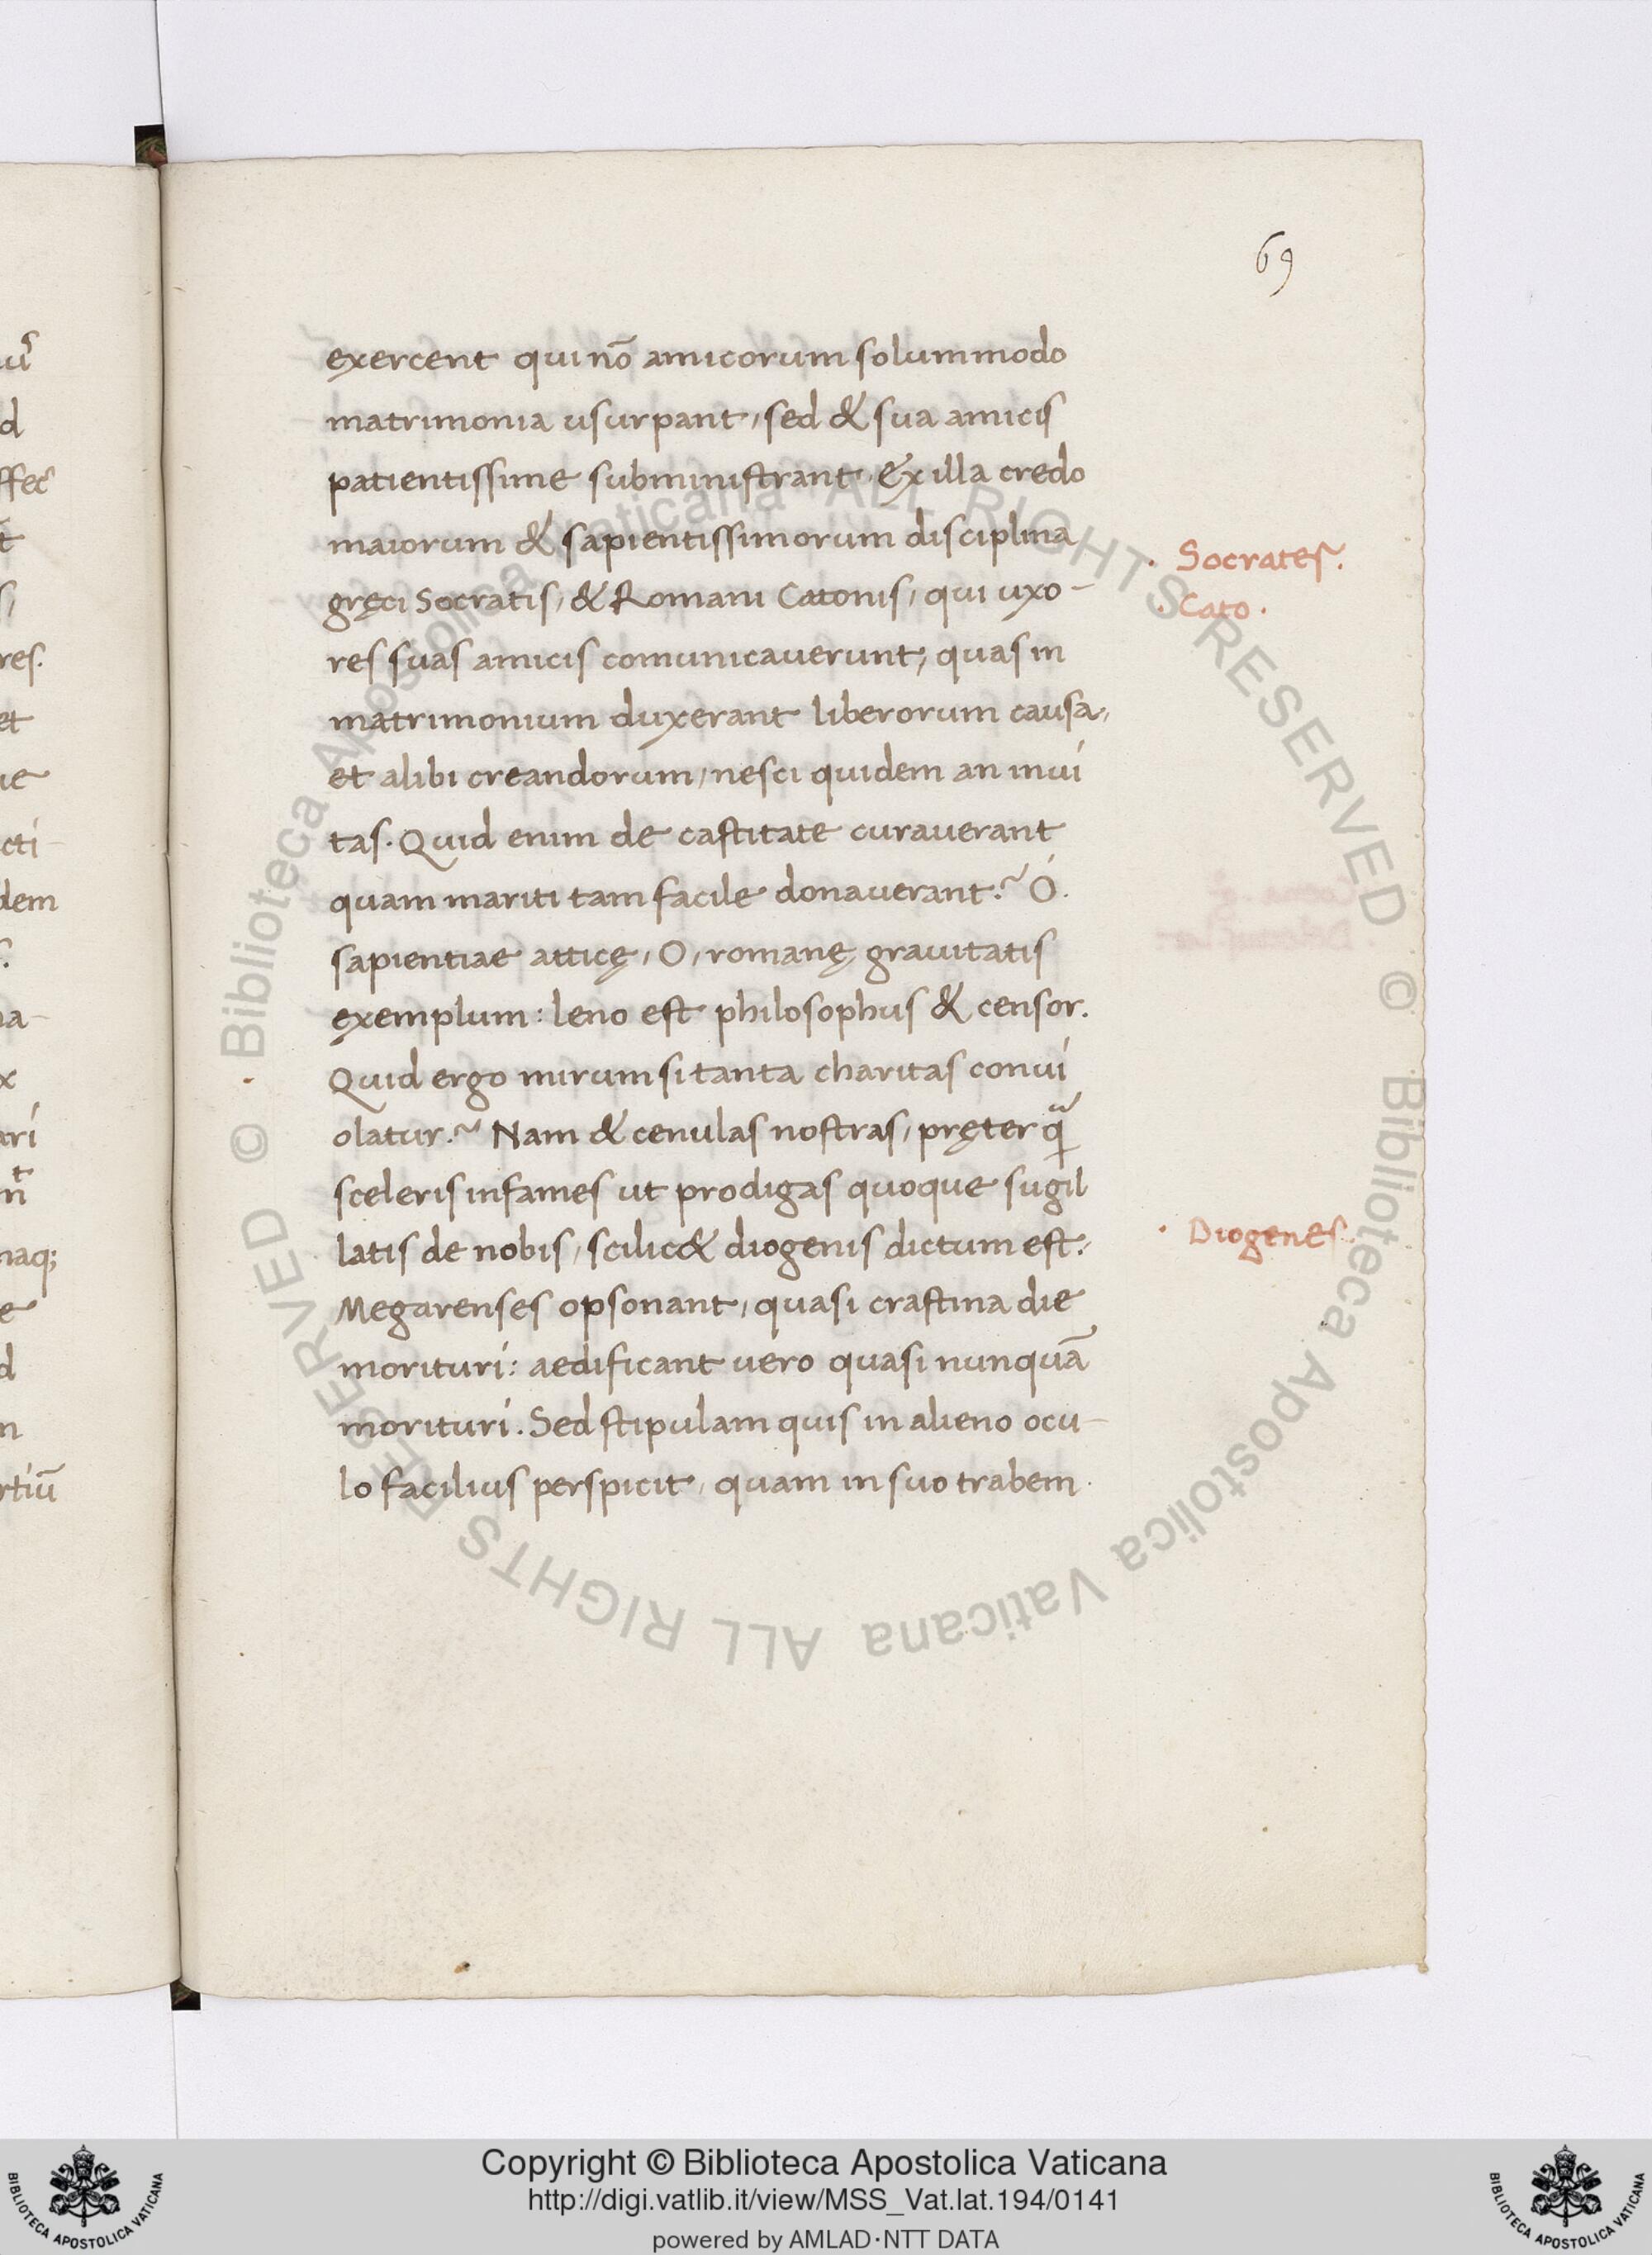 69
exercent qui nō amicorum solummodo
matrimonia usurpant, sed & sua amicis
patientissime subministrant. Ex illa credo
maiorum & sapientissimorum disciplina
gręci Socratis, & Romani Catonis, qui uxo-
res suas amicis comunicauerunt, quas in
matrimonium duxerant liberorum causa,
et alibi creandorum, nesci quidem an inui
tas. Quid enim de castitate curauerant
quam mariti tam facile donauerant? O.
sapientiae atticę, O, romanę grauitatis
exemplum: leno est philosophus & censor.
Quid ergo mirum si tanta charitas conui
olatur? Nam & cenulas nostras, pręter qͣ
sceleris infames ut prodigas quoque sugil
latis de nobis, scilic& diogenis dictum est.
Megarenses opsonant, quasi crastina die
morituri: aedificant uero quasi nunquā
morituri. Sed stipulam quis in alieno ocu-
lo facilius perspicit, quam in suo trabem.
· Socrates.
· Cato.
· Diogenes.
© Biblioteca Apostolica Vaticana ALL RIGHTS RESERVED © Biblioteca Apostolica Vaticana ALL RIGHTS RESERVED
Copyright © Biblioteca Apostolica Vaticana
http://digi.vatlib.it/view/MSS_Vat.lat.194/0141
powered by AMLAD·NTT DATA
BIBLIOTECA APOSTOLICA VATICANA
BIBLIOTECA APOSTOLICA VATICANA